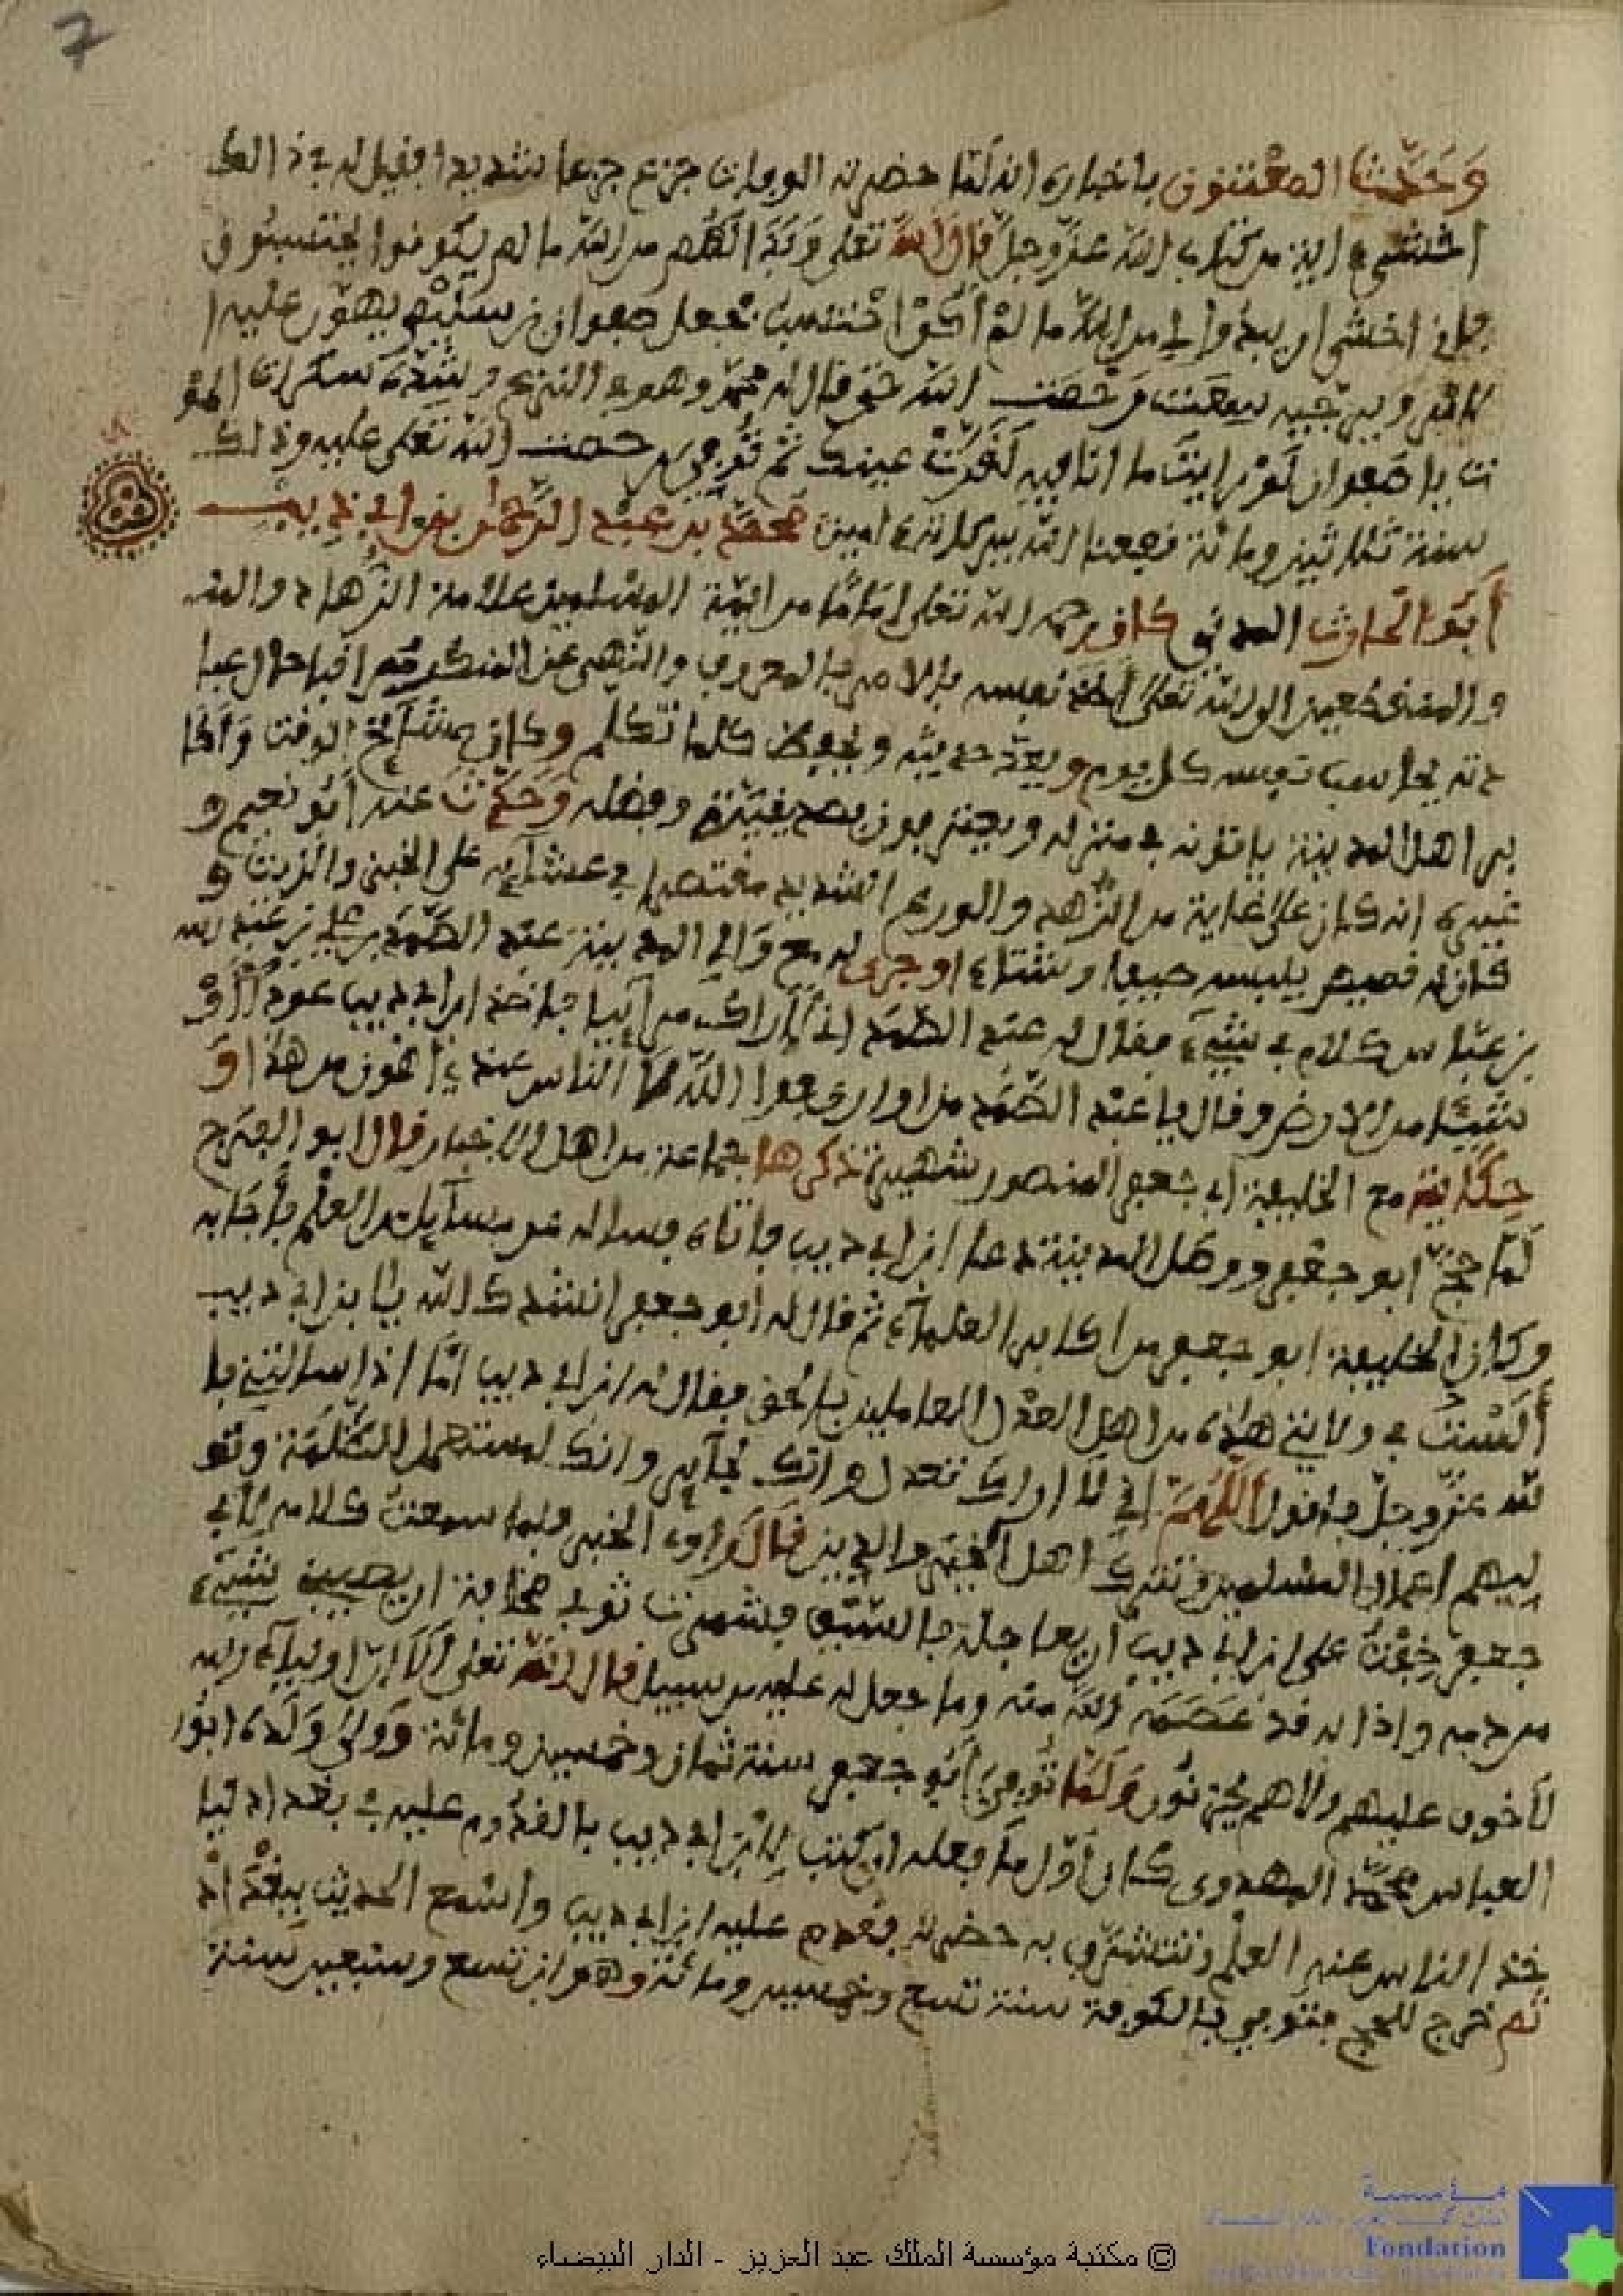 7
وَحَدَّثَ المعْتنون باخباره انه لَمّا حضرته الوفاة جزع جزعا شديدا فقيل له في ذالك
اخشى اية من كتاب الله عزّ وجلّ قال اللهُ تعلى وَبَدَا لَهُم من الله ما لم يكونوا يحتسبُون
فانا اخشى ان يبدُوا لي من الله ما لمْ أكُنْ احْتسب فجعل صفوان بن سليْم يهوّن عليه ا
لامر و
الله حتى قال له محمّد وهو في النزع وشدّة سكرات المو
ت يا صفوان لَوْ رايتَ ما انا فيه لَقَرَّتْ عينك ثم تُوفي رحمت الله تعلى عليه وذلك
سنة ثلاثين ومائة نفعنا الله ببركاته امين محمّد بن عبْد الرّحمٰن بن ابي ذيب
أبُو الحارث المدني كان رحمه الله تعلى امَامًا من ايمّة المسْلمين علامة الزُّهاد والمتـ
والمنقطعين الى الله تعلى نفسه بالامر بالمعروف والنّهي عن المنكر
يحاسب نفسه كل يوم ويعدّ حديثه ويحفظ كلما تكلم وكان مشآئخ الوقت وَأكا
بر اهل المدينة ياتونه في منزله ويعترفون بصديقيّته وفضله وَحَكَتْ عنه أبُو نعيم و
غيره انه كان على غاية من الزُّهد والورع الشديد مقتصرا في عشآئه على الخبز والزيت و
كان له قميص يلبسه صيفا وشتاء ا وجرى له مع وَالي المدينة عبْد الصَّمَد بن علي بن عبْد الله
بن عبّاس كلام في شيْء فقال له عبْد الصّمَد اني لأراك مرآئيا فاخذ ابن ابي ذيب عودًا أوْ
شيئا من الارض وقال يا عبْد الصَّمَد من اوارى فوا اللّه لَلنّاس عندي أهْون من هٰذا وَ
حِكَايته مع الخليفة ابي جعفر المنصور شهيرة ذكرها جماعة من اهل الاخبار قال ابو الفرج
لَمّا حَجّ ابو جعفر ودخل المدينة دعا ابن ابي ذيب فاتاه فساله عن مسآيل من العلْم فأجَابه
وكان الخليفة ابو جعفر من اكابر العلمآء ثم قال له ابو جعفر انشدك الله يا ابن ابي ذيب
أَلَسْتُ في ولايتي هٰذه من اهل العدْل العاملين بالحق فقال له ابن ابي ذيب امّا اذا سالتني با
لله عزّ وجلّ فاقول اللهُمّ إني لا اراك تعدل وانك لجآئر وانك لمستعمل الظّلَمَة وتو
ليهم اعمال المسْلمين وتترك اهل الخير والدين قَالَ راوي الخبر فلما سمعتُ كلامه لابي
جعفر خفْتُ على ابن ابي ذيب أن يعاجله بالسّيف فشمرت ثوبي مخافة ان يصيبني شيء
من دمه واذا به قد عَصَمَه اللهُ منه وما جعل له عليه من سبيل قال الله تعلى أَلآ ان اوليآء الله
لاَ خوف عليهم ولا هم يحزنُون وَلَمّا تُوفيَ أبُو جعفر سنة ثمان وخمسين ومائة وَوَلى وَلَده ابُو
العباس محمّد المهدوي كان أوّل ما فعله ان كتب لابن ابي ذيب بالقدُوم عليه في بغداد ليا
خذ الناس عنه العلْم وتتشرّف به حضرته فقدم عليه ابن ابي ذيب واسْمع الحديث ببغْدَاد
ثم خرج للحج فتوفي بالكوفة سنة تسع وخمسين ومائة وهو ابن تسع وسبعين سنة
© مكتبة مؤسسة الملك عبد العزيز - الدار البيضاء
مؤسسة
Fondation